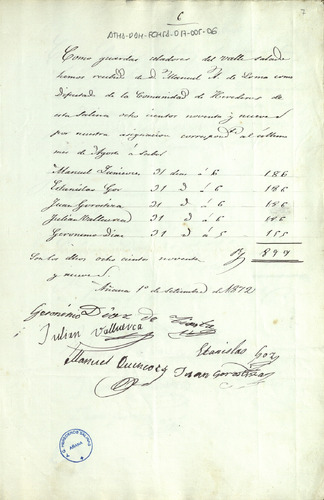 6
7
ATHA-DAH-FCHSA-017-005-06
Como guardas celadores del valle salado
hemos recibido de D. Manuel de como
Diputado de la Comunidad de Herederos de
esta salina ocho cientos noventa y nueve
por nuestra asignacion correspond. al ultimo
mes de Agosto á saber
Manuel 31 dias á 6 186
Estanislao Goy 31 á 6 186
Juan Gorostiza 31 á 6 186
Julian Valluerca 31 á 6 186
Geronimo Diaz 31 á 5 155
899
Son los dhos ocho cientos noventa
y nueve
Añana 1º de Setiembre de 1872
Geronimo Diaz de
Julian Valluerca
Estanislao Goy
Manuel
Juan Gorostiza
AÑANA